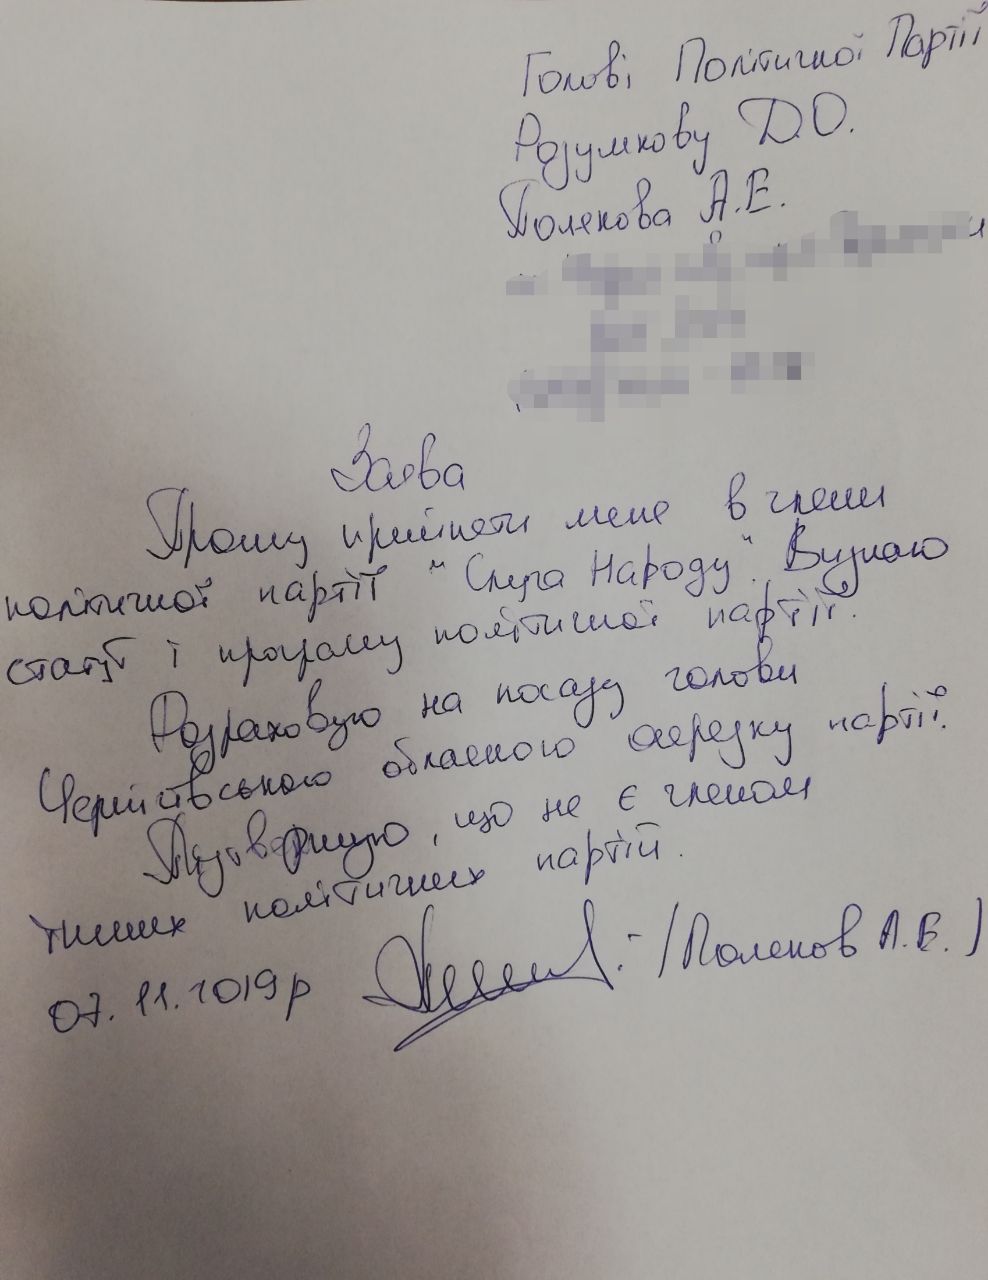 Голові Політичної Партії
Розумкову Д.О.
Полякова А.Е.
Заява
Прошу прийняти мене в члени
політичної партії "Слуга Народу". Визнаю
статут і програму політичної партії.
Розраховую на посаду голови
Чернігівського обласного осередку партії.
Підтверджую, що не є членом
інших політичних партій.
07.11.2019р (Поляков А.Е.)